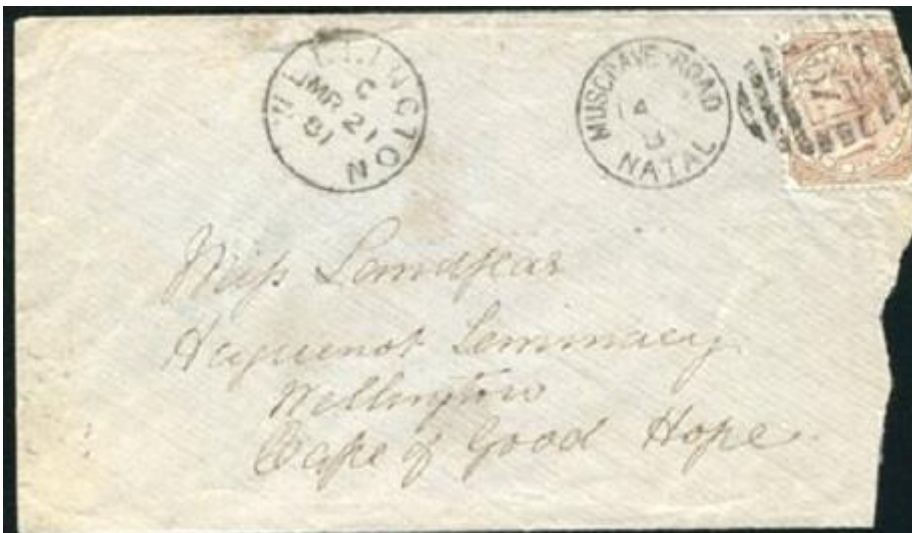 WELLINGTON
C
MR 21
81
MUSGRAVE ROAD
14
NATAL
Miss Landfear
Huguenot Seminary
Wellington
Cape of Good Hope